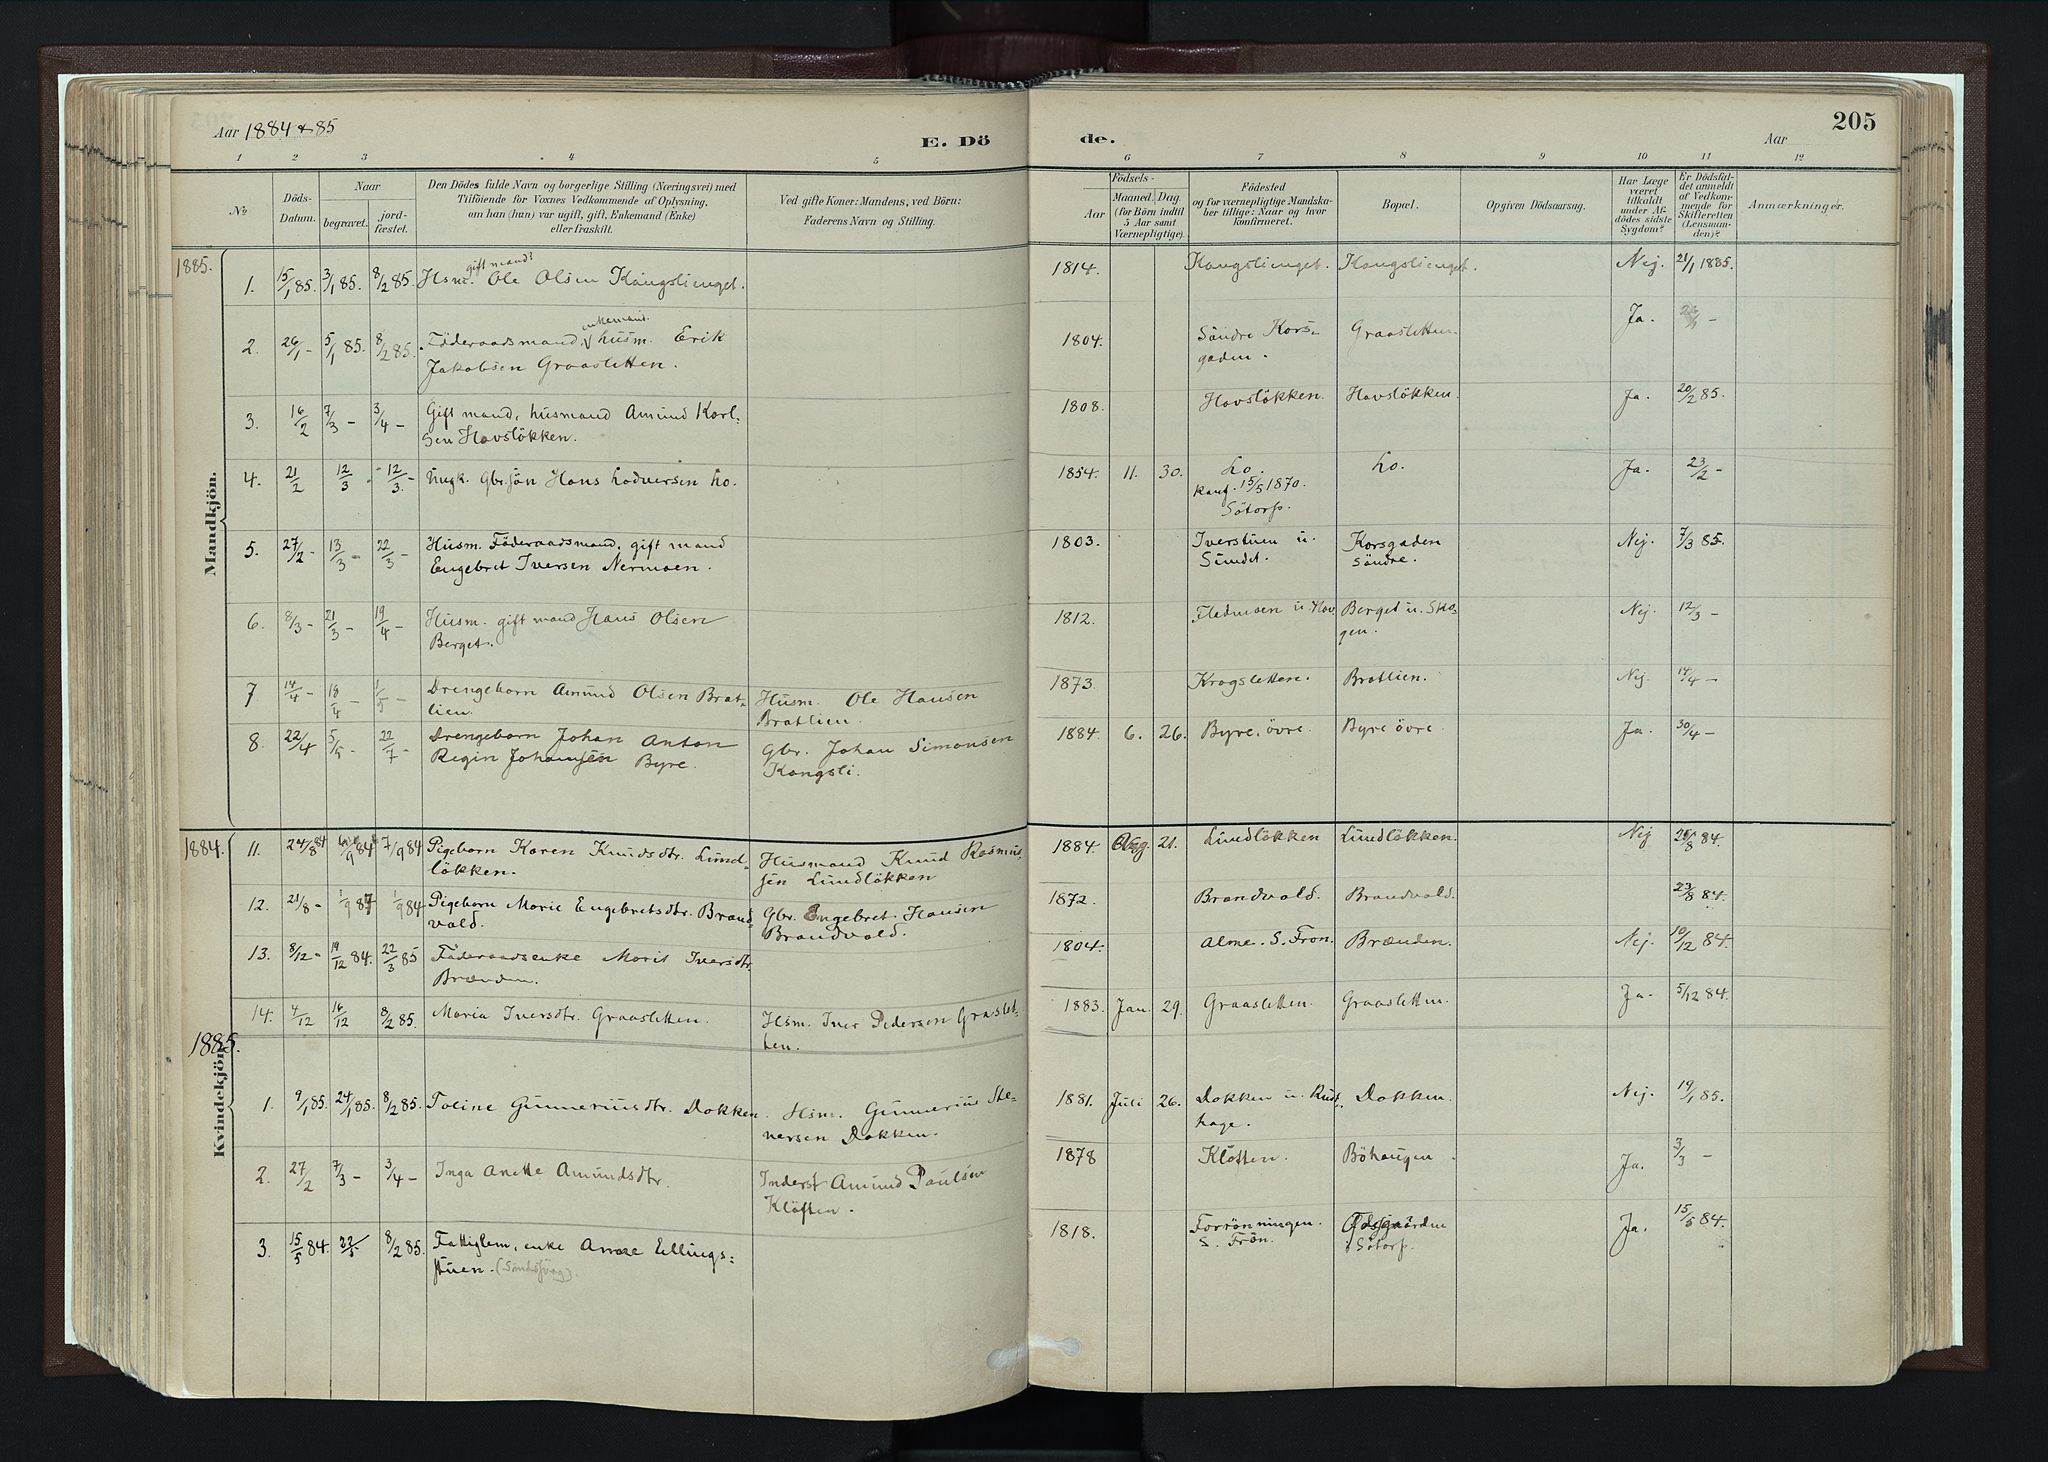 Aar 1884 & 85
E. Dö
de.
Aar
205
1 2 3 4 5 6 7 8 9 10 11 12
No
Döds-
Datum.
Naar
begravet.
jord-
fæstet.
Den Dödes fulde Navn og borgerlige Stilling (Næringsvei) med
Tilföiende for Voxnes Vedkommende af Oplysning,
om han (hun) var ugift, gift, Enkemand (Enke)
eller fraskilt.
Ved gifte Koner: Mandens, ved Börn:
Faderens Navn og Stilling.
Födsels-
Aar
Maaned. Dag.
(for Börn indtil
5 Aar samt
Værnepligtige).
Födested
og for værnepligtige Mandska-
ber tillige: Naar og hvor
konfirmeret.
Bopæl.
Opgiven Dödsaarsag.
Har Læge
været
tilkaldt
under Af-
dödes sidste
Sygdom?
Er Dödsfal-
det anmeldt
af Vedkom-
mende for
Skifteretten
(Lensman-
den)?
Anmærkninger.
Mandkjön.
1885.
gift mand?
1. 15/1 85. 3/1 85. 8/2 85. Hsm. Ole Olsen Kangslienget. 1814. Kangslienget. Kangslienget. Nej. 21/1 1885.
enkemand.
2. 26/1 - 5/1 85. 8/2 85. Föderaadsmand, husm. Erik
Jakobsen Graasletten. 1804. Söndre Kors-
gaden. Graasletten. Ja.
3. 16/2 7/3 - 3/4 - Gift mand, husmand Amund Karl-
sen Hovslökken. 1808. Hovslökken. Hovslökken. Ja. 20/2 85.
4. 21/2 12/3 - 12/3. Ungk. Gbr.sön Hans Lodversen Lo. 1854. 11. 30. Lo.
konf. 15/5 1870.
Sötorp. Lo. Ja. 23/2 -
5. 27/2 - 13/3 - 22/3 - Husm. Föderaadsmand, gift mand
Engebret Iversen Nermoen. 1803. Iverstuen u.
Sundet. Korsgaden
Söndre. Nej. 7/3 85.
6. 8/3 - 21/3 - 19/4 - Husm. gift mand Hans Olsen
Berget. 1812. Fledmoen u. Hov Berget u. Sko-
gen. Nej. 12/3 -
7 14/4 - 18/4 - 1/5 - Drengebarn Amund Olsen Brat-
lien. Husm. Ole Hansen
Bratlien. 1873. Kragsletten. Bratlien. Nej. 14/4 -
8. 22/4 5/5 - 22/7 - Drengebarn Johan Anton
Regin Johansen Byre. Gbr. Johan Simonsen
Kongsli. 1884. 6. 26. Byre, övre. Byre övre. Ja. 30/4 -
Kvindekjön.
1884.
11. 24/8 84 7/9 84 Pigebarn Karen Knudsdtr. Lund-
lökken. Husmand Knud Rasmus-
sen Lundlökken 1884. Aug. 21. Lundlökken Lundlökken. Nej
12. 21/8 - 1/9 84 1/9 84 Pigebarn Marie Engebretsdtr. Brand-
vold. Gbr. Engebret Hansen
Brandvold. 1872. Brandvold. Brandvold. 23/8 84.
13. 8/12 - 19/12 84. 22/3 85 Föderaadsenke Marit Iversdtr.
Brænden. 1804. Alme. S. Fron. Brænden. Nej. 10/12 84.
14. 4/12 16/12 8/2 85. Maria Iversdtr. Graasletten. Hsm. Iver Pedersen Graslet-
ten. 1883. Jan. 29. Graasletten. Graasletten. Ja. 5/12 84.
1885.
1. 9/1 85. 24/1 85. 8/2 85. Toline Gunneriusdtr. Dokken. Hsm. Gunnerius Ste-
nersen Dokken. 1881. Juli 26. Dokken u. Rust-
hage. Dokken. Nej. 19/1 85.
2. 27/2 7/3 - 3/4 - Inga Anette Amundsdtr. Inderst Amund Paulsen
Klöften. 1878 Klöften. Böhaugen. Ja. 3/3 -
3. 15/5 84. 22/5 8/2 85. Fattiglem, enke Anne Ellings-
stuen. 1818. Forrönningen.
S. Fron.
i Sötorp. Ja. 15/5 84.